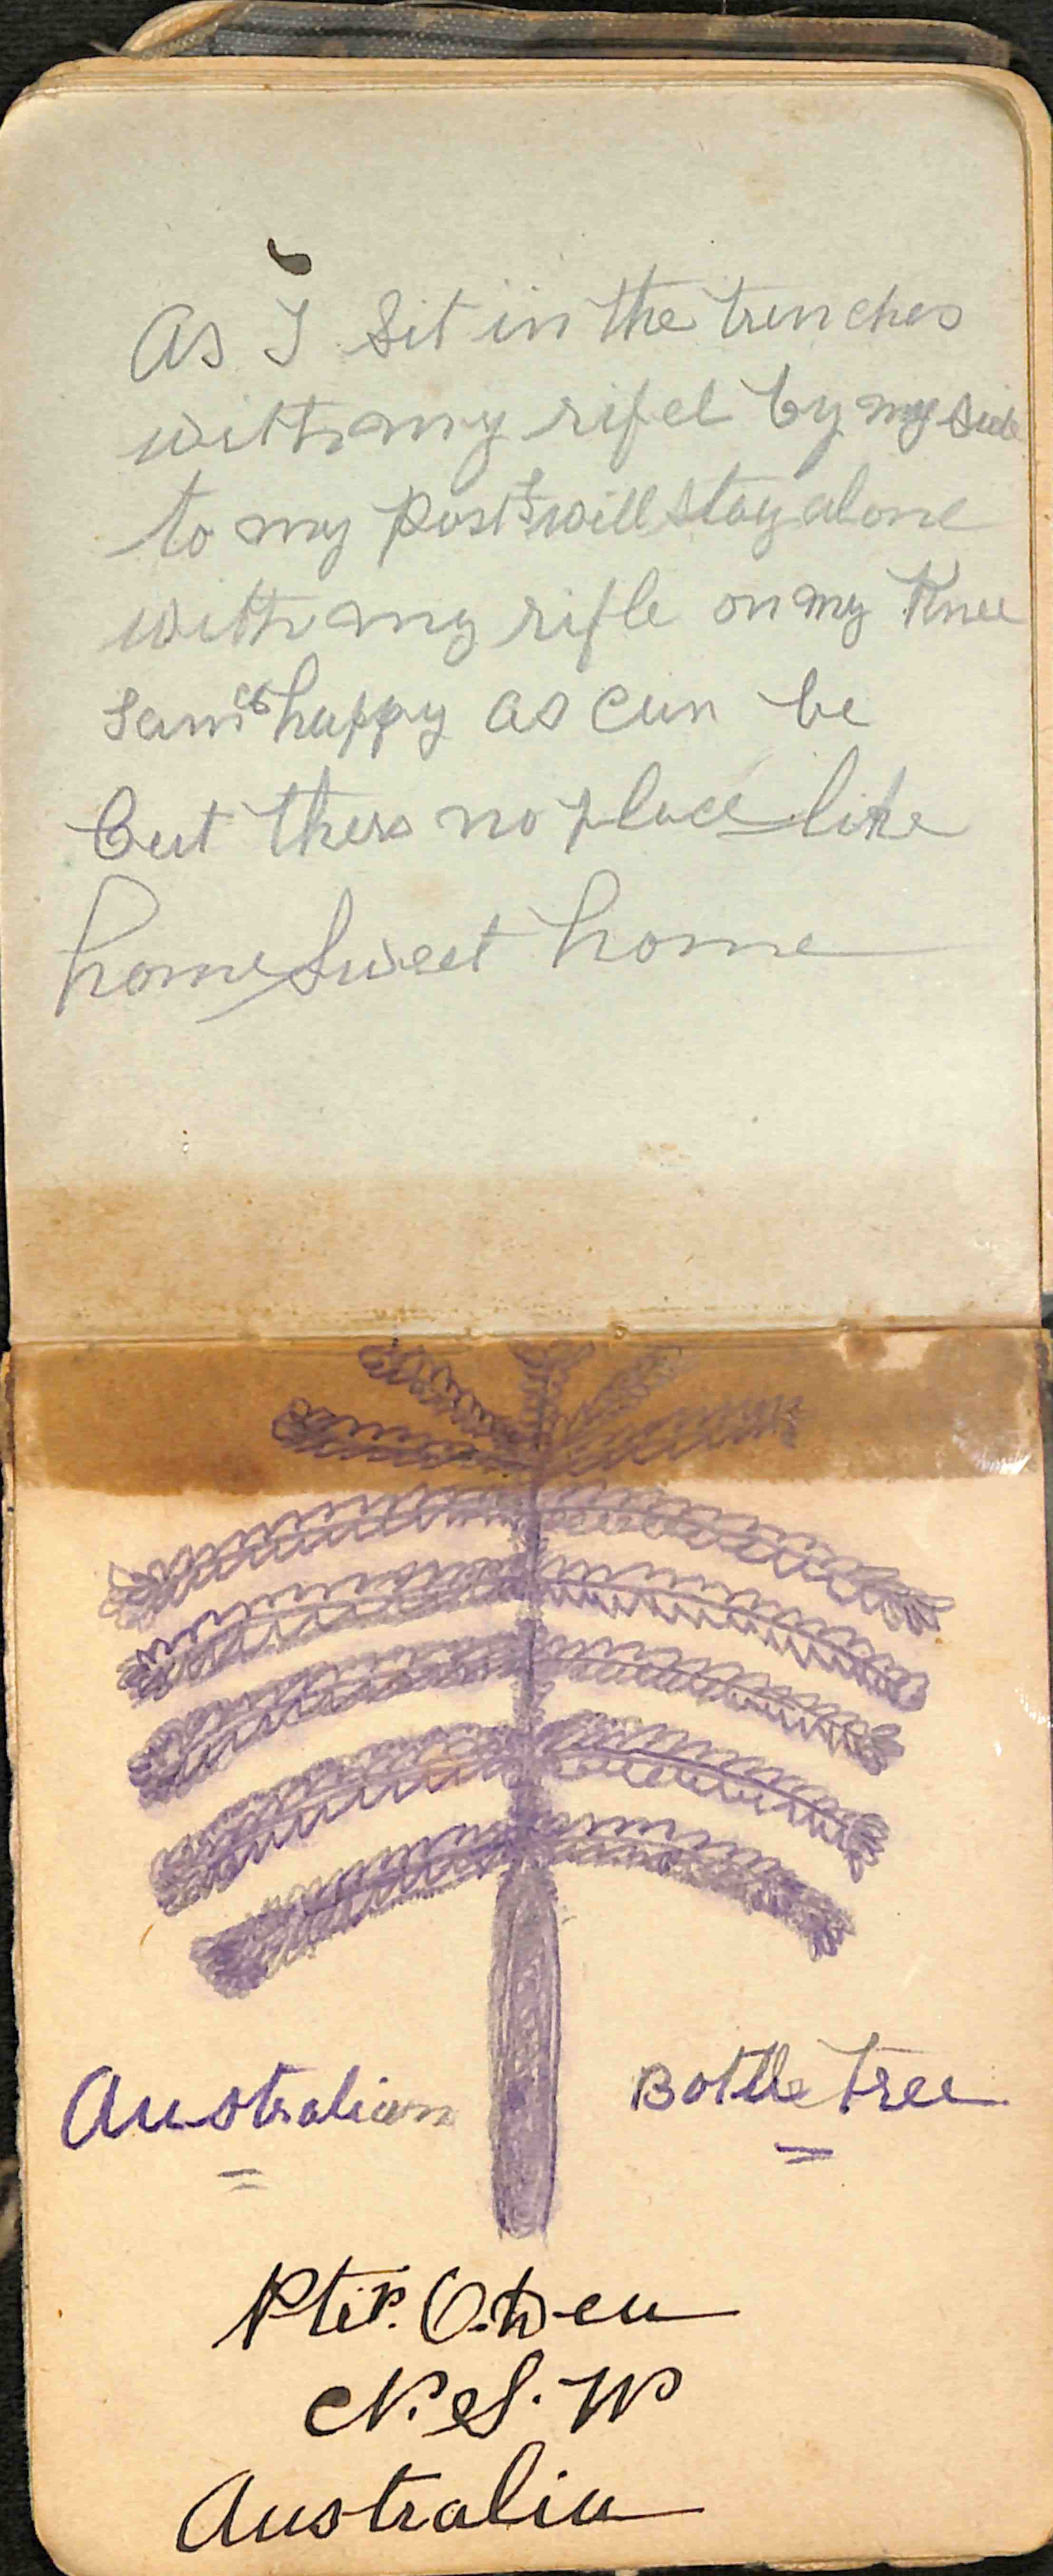 As I sit in the trenches
with my rifel by my side
to my post I will stay alone
with my rifle on my Knee
I am as happy as can be
but thers no place like
home Sweet home
Australian Bottle tree
Pte P. Owen
N. S. W
Australia